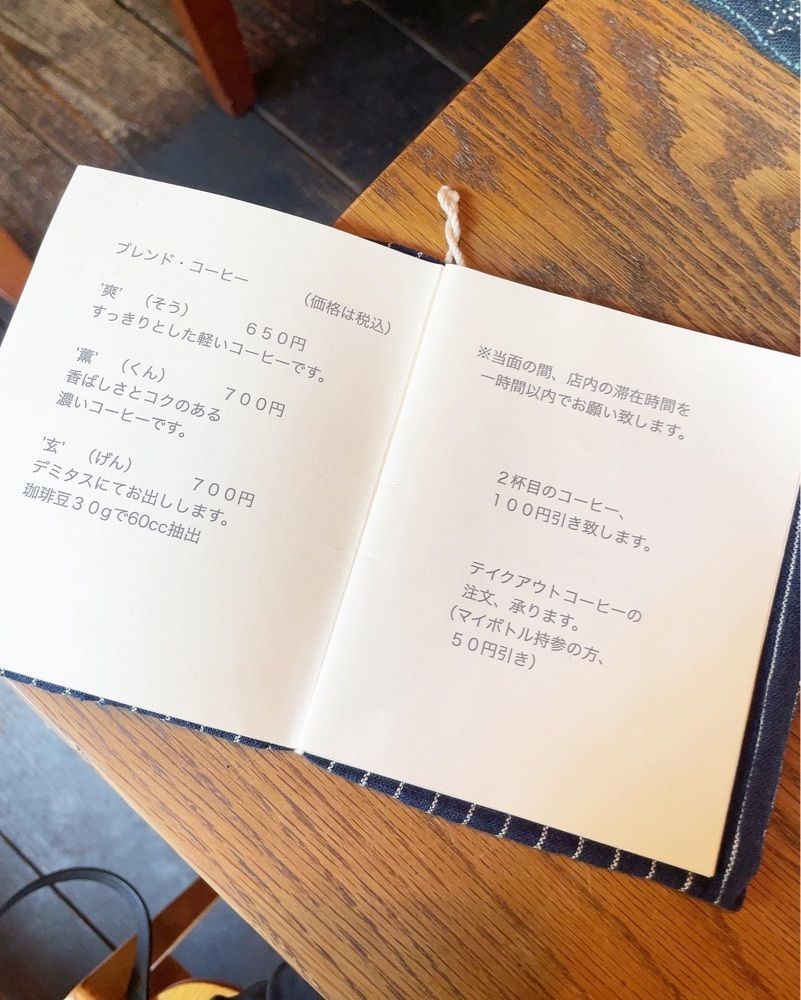 ブレンド・コーヒー
（価格は税込）
'爽' （そう） ６５０円
すっきりとした軽いコーヒーです。
'薫' （くん） ７００円
香ばしさとコクのある
濃いコーヒーです。
'玄' （げん） ７００円
デミタスにてお出しします。
珈琲豆３０gで60cc抽出
※当面の間、店内の滞在時間を
一時間以内でお願い致します。
２杯目のコーヒー、
１００円引き致します。
テイクアウトコーヒーの
注文、承ります。
（マイボトル持参の方、
５０円引き）